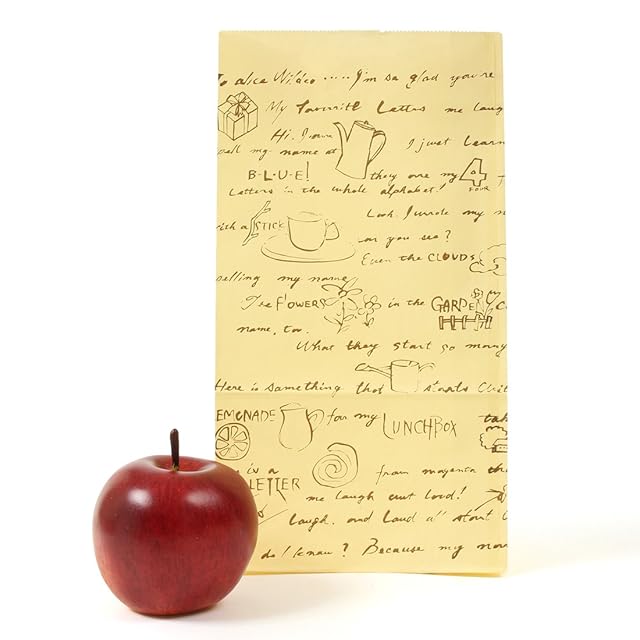 To alice Wilco ..... I'm so glad you're
My favorite Letters me laug
Hi. I
spell my name at I just learn
B-L-U-E! they are my 4
FOUR
Letters in the whole alphabet!
with a STICK Look I wrote my n
can you see?
Even the CLOUDS
spelling my name
The FlOWERS in the GARDEN
name, too.
What they start so many
Here is something that starts
LEMONADE for my LUNCHBOX tak
is a from magenta the
LETTER
me laugh out loud!
laugh. and Laud start
do I know? Because my nam